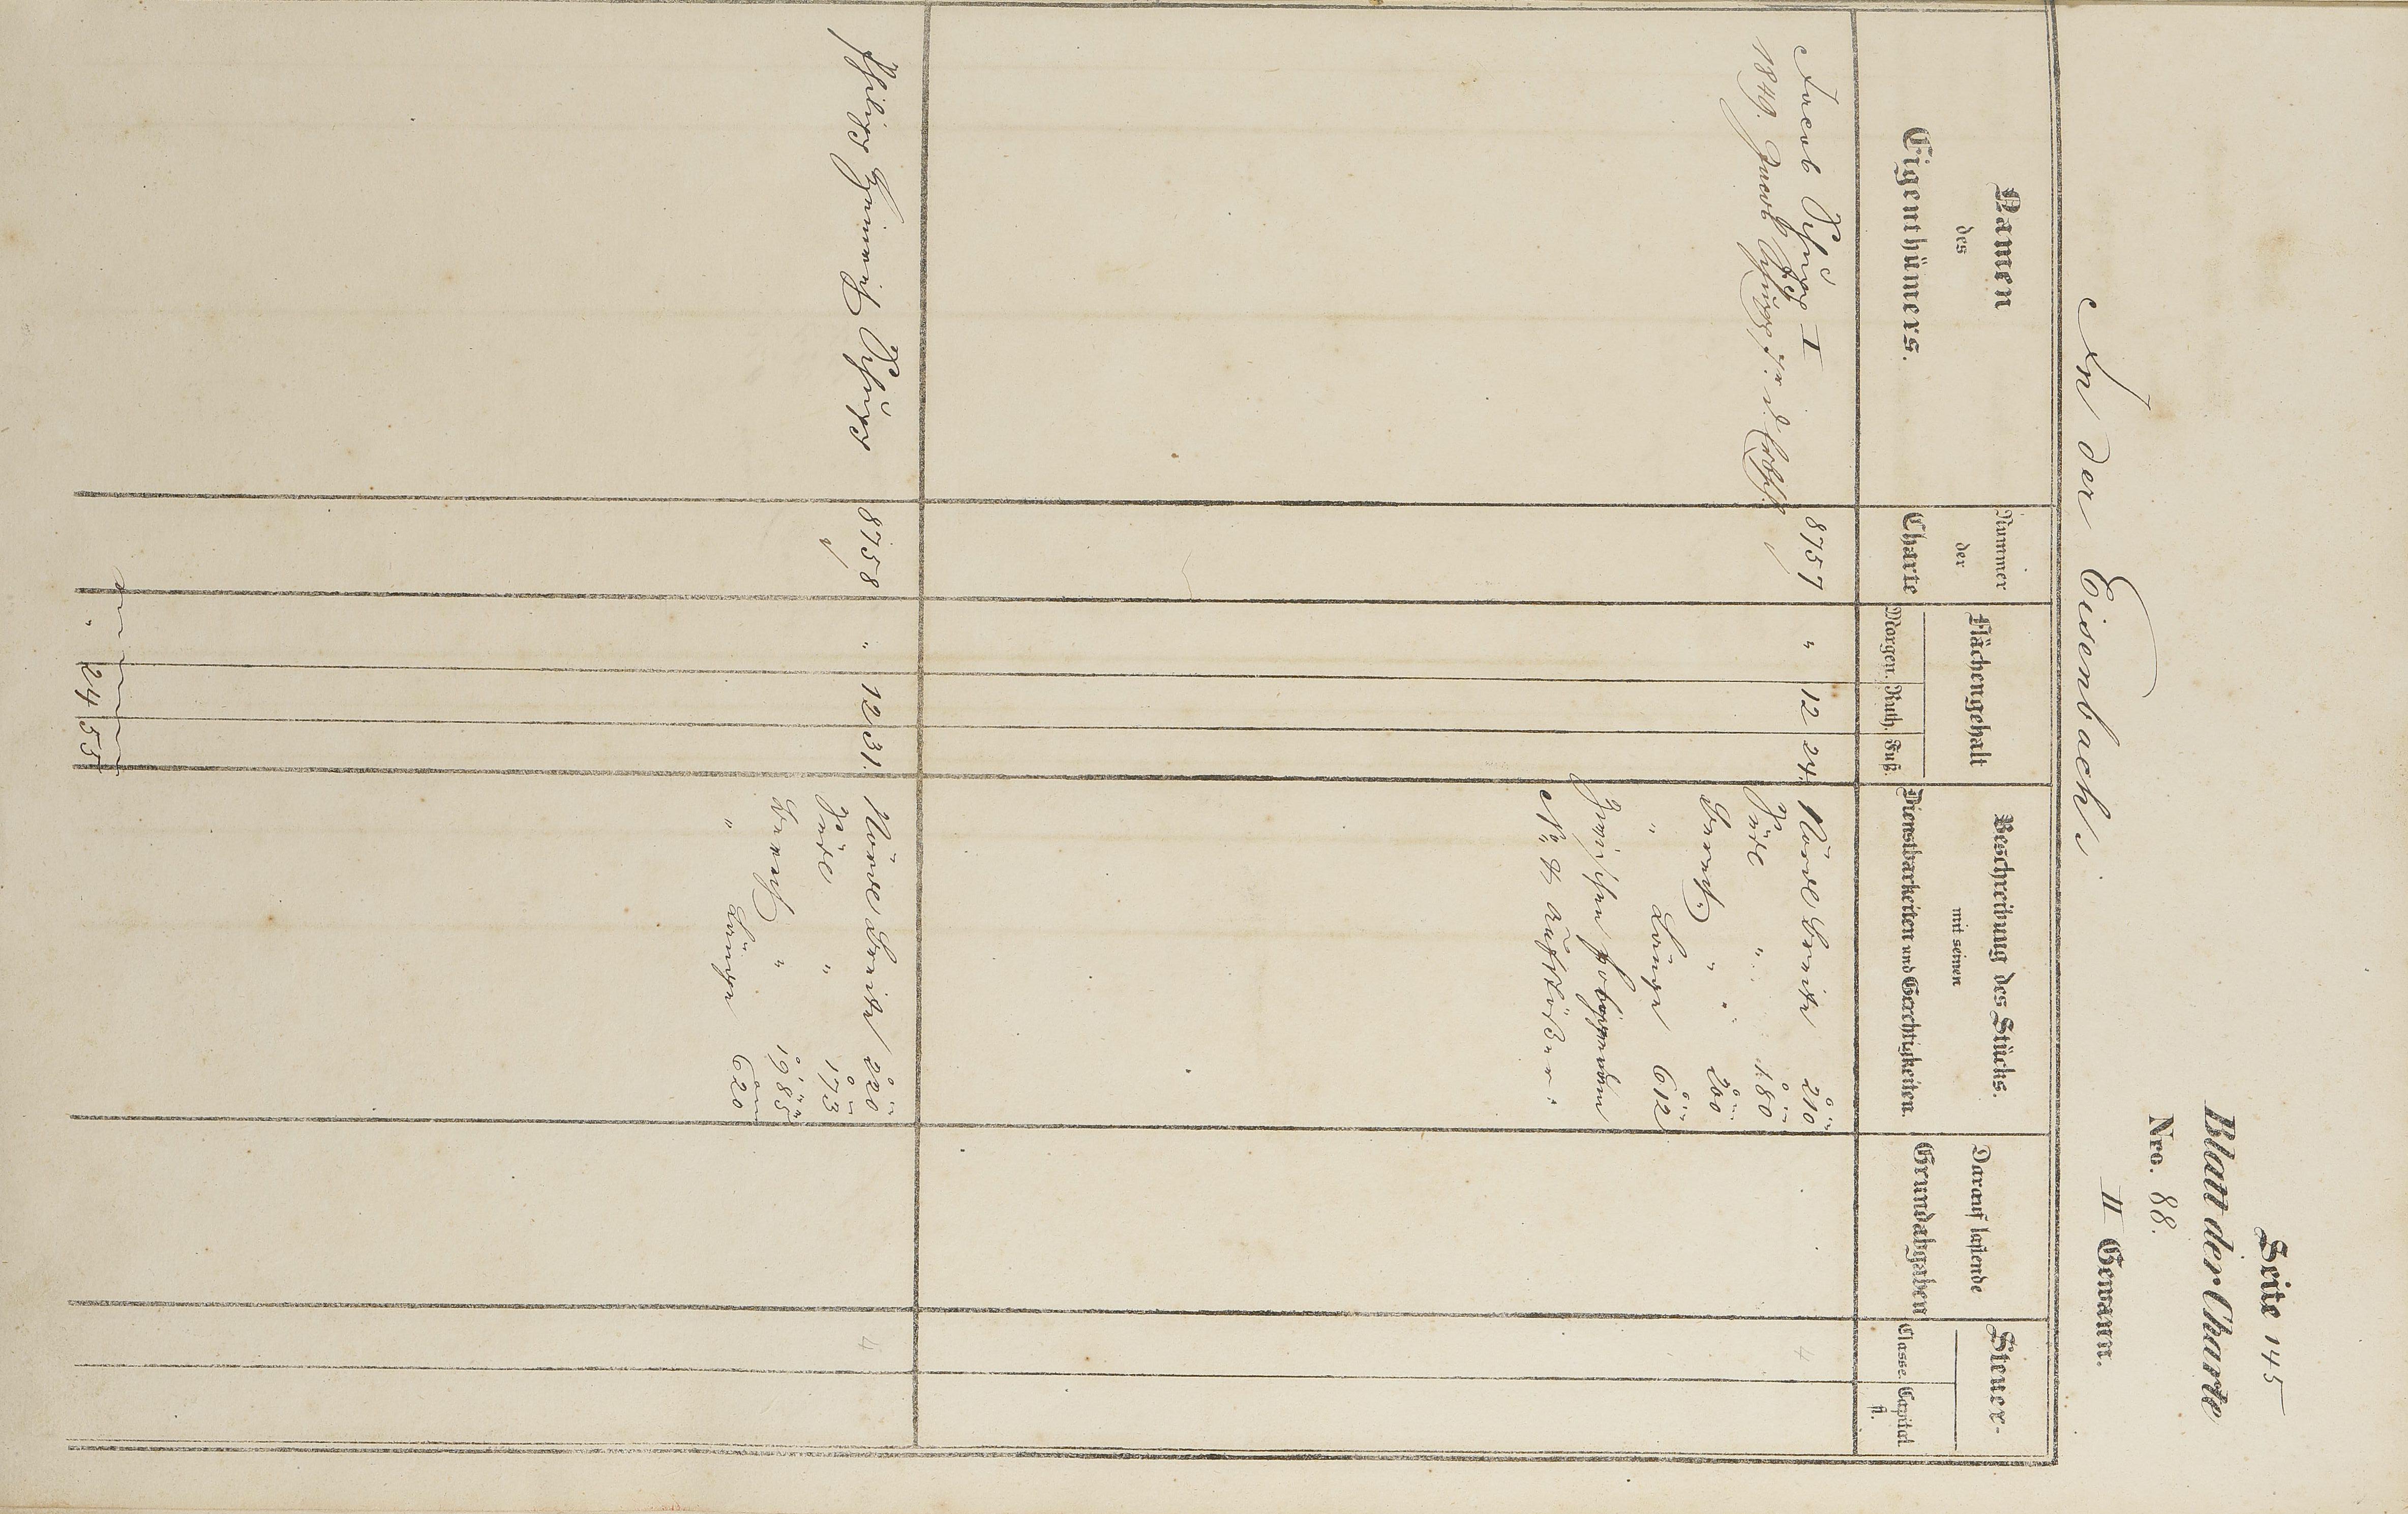 Seite 145
Blatt der Charte
Nro. 88.
II Gewann.
In der Eisenbach.
Namen
des
Eigenthümers.
Nummer
der
Charte
Flächengehalt
Morgen. Ruth. Fuß.
Beschreibung des Stücks.
mit seinen
Dienstbarkeiten und Gerechtigkeiten.
Darauf lastende
Grundabgaben
Steuer-
Classe. Capital
fl.
Jacob Schupp I 8757 " 12 24. Nördl Breite 210 4
1849. Jacob Schupp
Südl " 180
Querch. " " 200
" Länge 612
Zwischen
No 4 aufstößer.
Philipp Heinrich Schupp 8758 " 12 31. Nördl Breite 220 4
Südl " 173
Querch " 198
" Länge 620
" 24 55